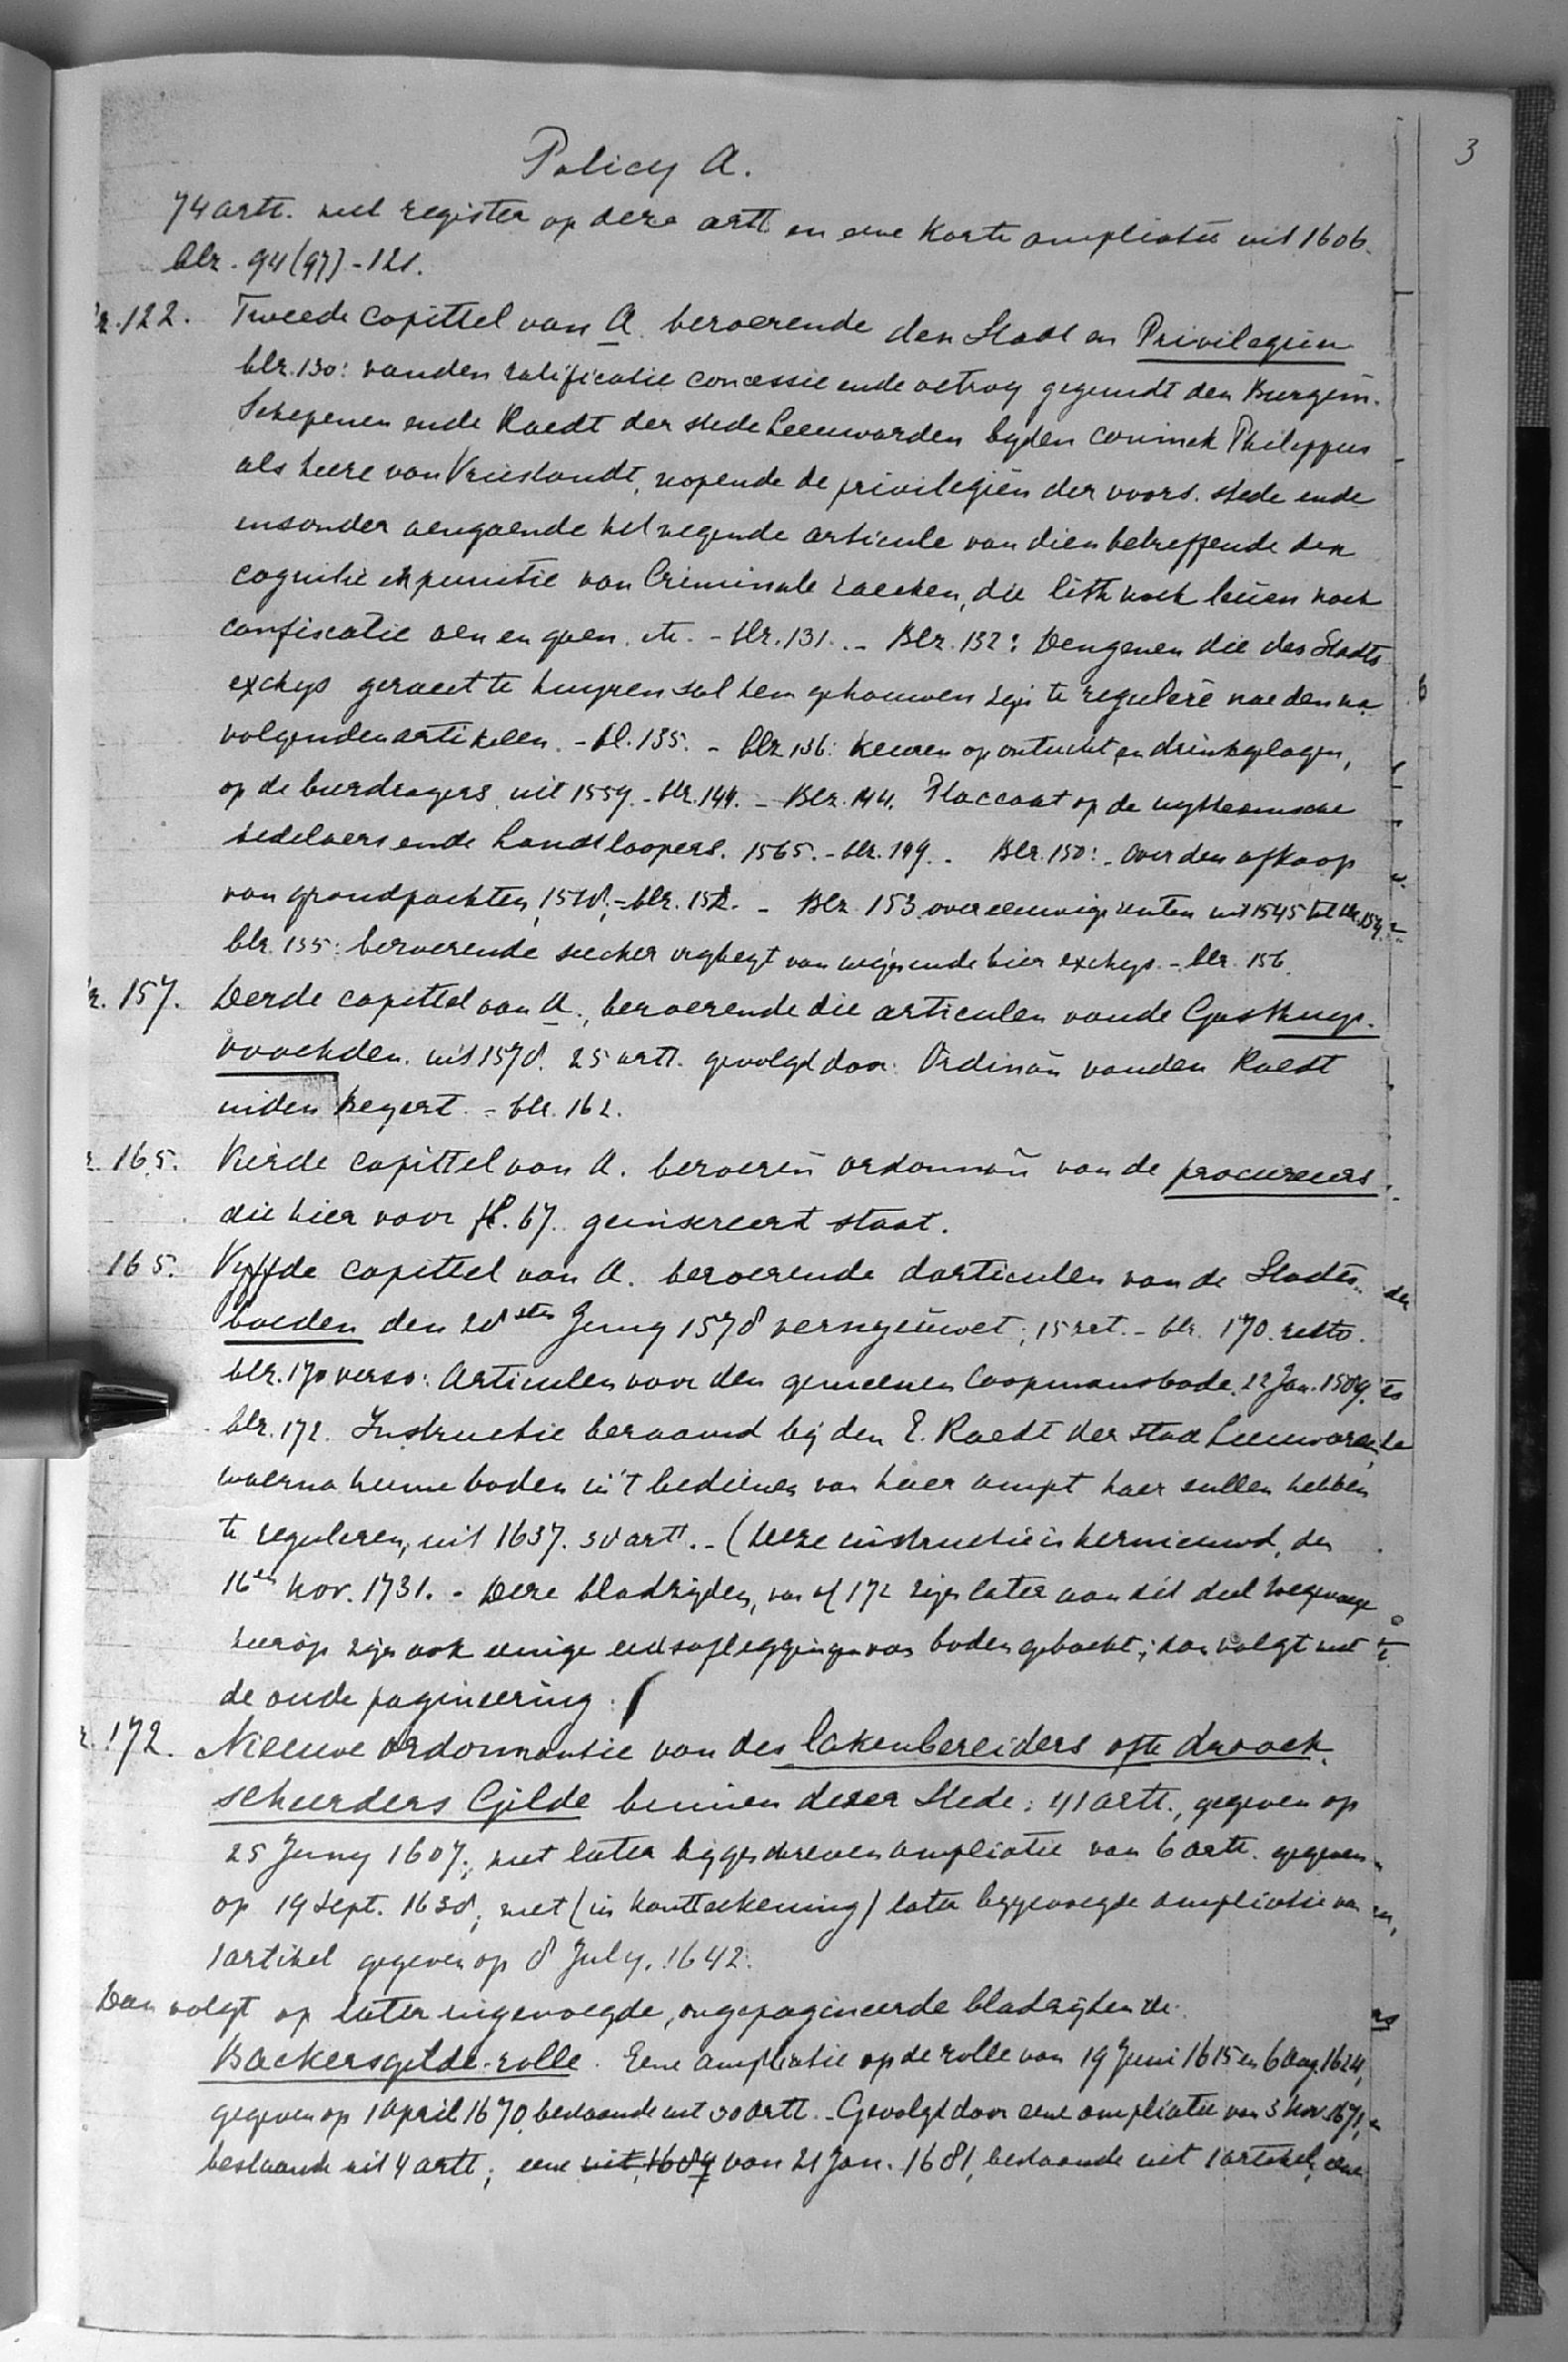 3
Policy A.
74 artt. met register op deze artt en eene korte ampliatie uit 1606.
blz. 94(97)-121.
z. 122. Tweede capittel van A. beroerende den Stadt en Privilegien
blz. 130: vanden ratificatie concessie ende octroy gegundt den Burgem.
Schepenen ende Raedt der stede Leeuwarden byden coninck Philippus
als heere van Vrieslandt, nopende de privilegiën der voors. stede ende
insonder aengaende het negende articule van dien betreffende den
cognitie en punitie van Criminale saecken, die lith noch leven noch
confiscatie aen en gaen. etc. - blz. 131. - Blz. 132: Dengenen die des Stadts
exchys geraect te huyren sal hem gehouwen zijn te regulerē nae den na
volgenden artikelen. - bl. 135. - blz 136: keuren op ontucht en drinkgelagen,
op de buerdragers uit 1559. - blz. 144. - Blz. 144. Placcaat op de uytheemsche
bedelaers ende Landtloopers. 1565. - blz. 149. - Blz. 150: - Over den afkoop
van grondpachten, 1578, - blz. 152. - Blz. 153 over eeuwige renten uit 1545 tot blz. 154.
blz. 155: beroerende seecker vryheyt van wijn ende bier exchys. - blz. 156.
z. 157. Derde capittel van A., beroerende die articulen vande Gasthuys-
voochden. uit 1578. 25 artt. gevolgd door: Ordinān vanden Raedt
inden Heyert. - blz. 162.
z. 165. Vierde capittel van A. beroerēn ordonnān van de procureurs.
die hier voor fl. 67. geinsereert staat.
165. Vyffde capittel van A. beroerende darticulen van de Stadts
boeden den 28sten Juny 1578 vernyeuwet; 15 art. - blz. 170. recto.
blz. 170 verso: Articulen voor den gemeenen Coopmansbode. 22 Jan. 1589.
blz. 172. Instructie beraamd bij den E. Raedt der stad Leeuwarden
waerna hunne boden in 't bedienen van haer ampt haer sullen hebben
te reguleren, uit 1637. 38 artt. - (Deze instructie is vernieuwd, den
16en Nov. 1731. - Deze bladzijden, van af 172 zijn later aan dit deel toegevoegd
hierop zijn ook eenige eedsafleggingen van boden geboekt; dan volgt met
de oude pagineering:
z. 172. Nieuwe Ordonnantie van des lakenbereiders ofte droock-
scheerders Gilde binnen deser Stede: 41 artt., gegeven op
25 Juny 1607; met later bijgeschreven ampliatie van 6 artt. gegeven
op 19 Sept. 1638, met (in kantteekening) later bygevoegde ampliatie van
1 artikel gegeven op 8 July. 1642.
Dan volgt op later ingevoegde, ongepagineerde bladzijden de:
Backersgilde-rolle. Eene ampliatie op de rolle van 19 Juni 1615 en 6 Aug. 1624,
gegeven op 1 April 1670 bestaande uit 30 artt. - Gevolgd door eene ampliatie van 3 Nov. 1671,
bestaande uit 4 artt; eene uit 1684 van 21 Jan. 1681, bestaande uit 1 artikel; eene